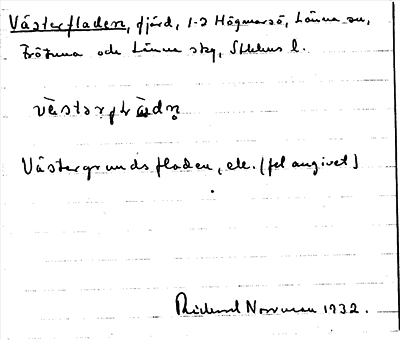 Västerfladen, fjärd, 1-2 Högmarsö, Länna sn,
Frötuna och Länna skg, Sthlms l.
västərflàdn̥
Västergrundsfladen, ek. (fel angivet)
Rickard Norrman 1932.